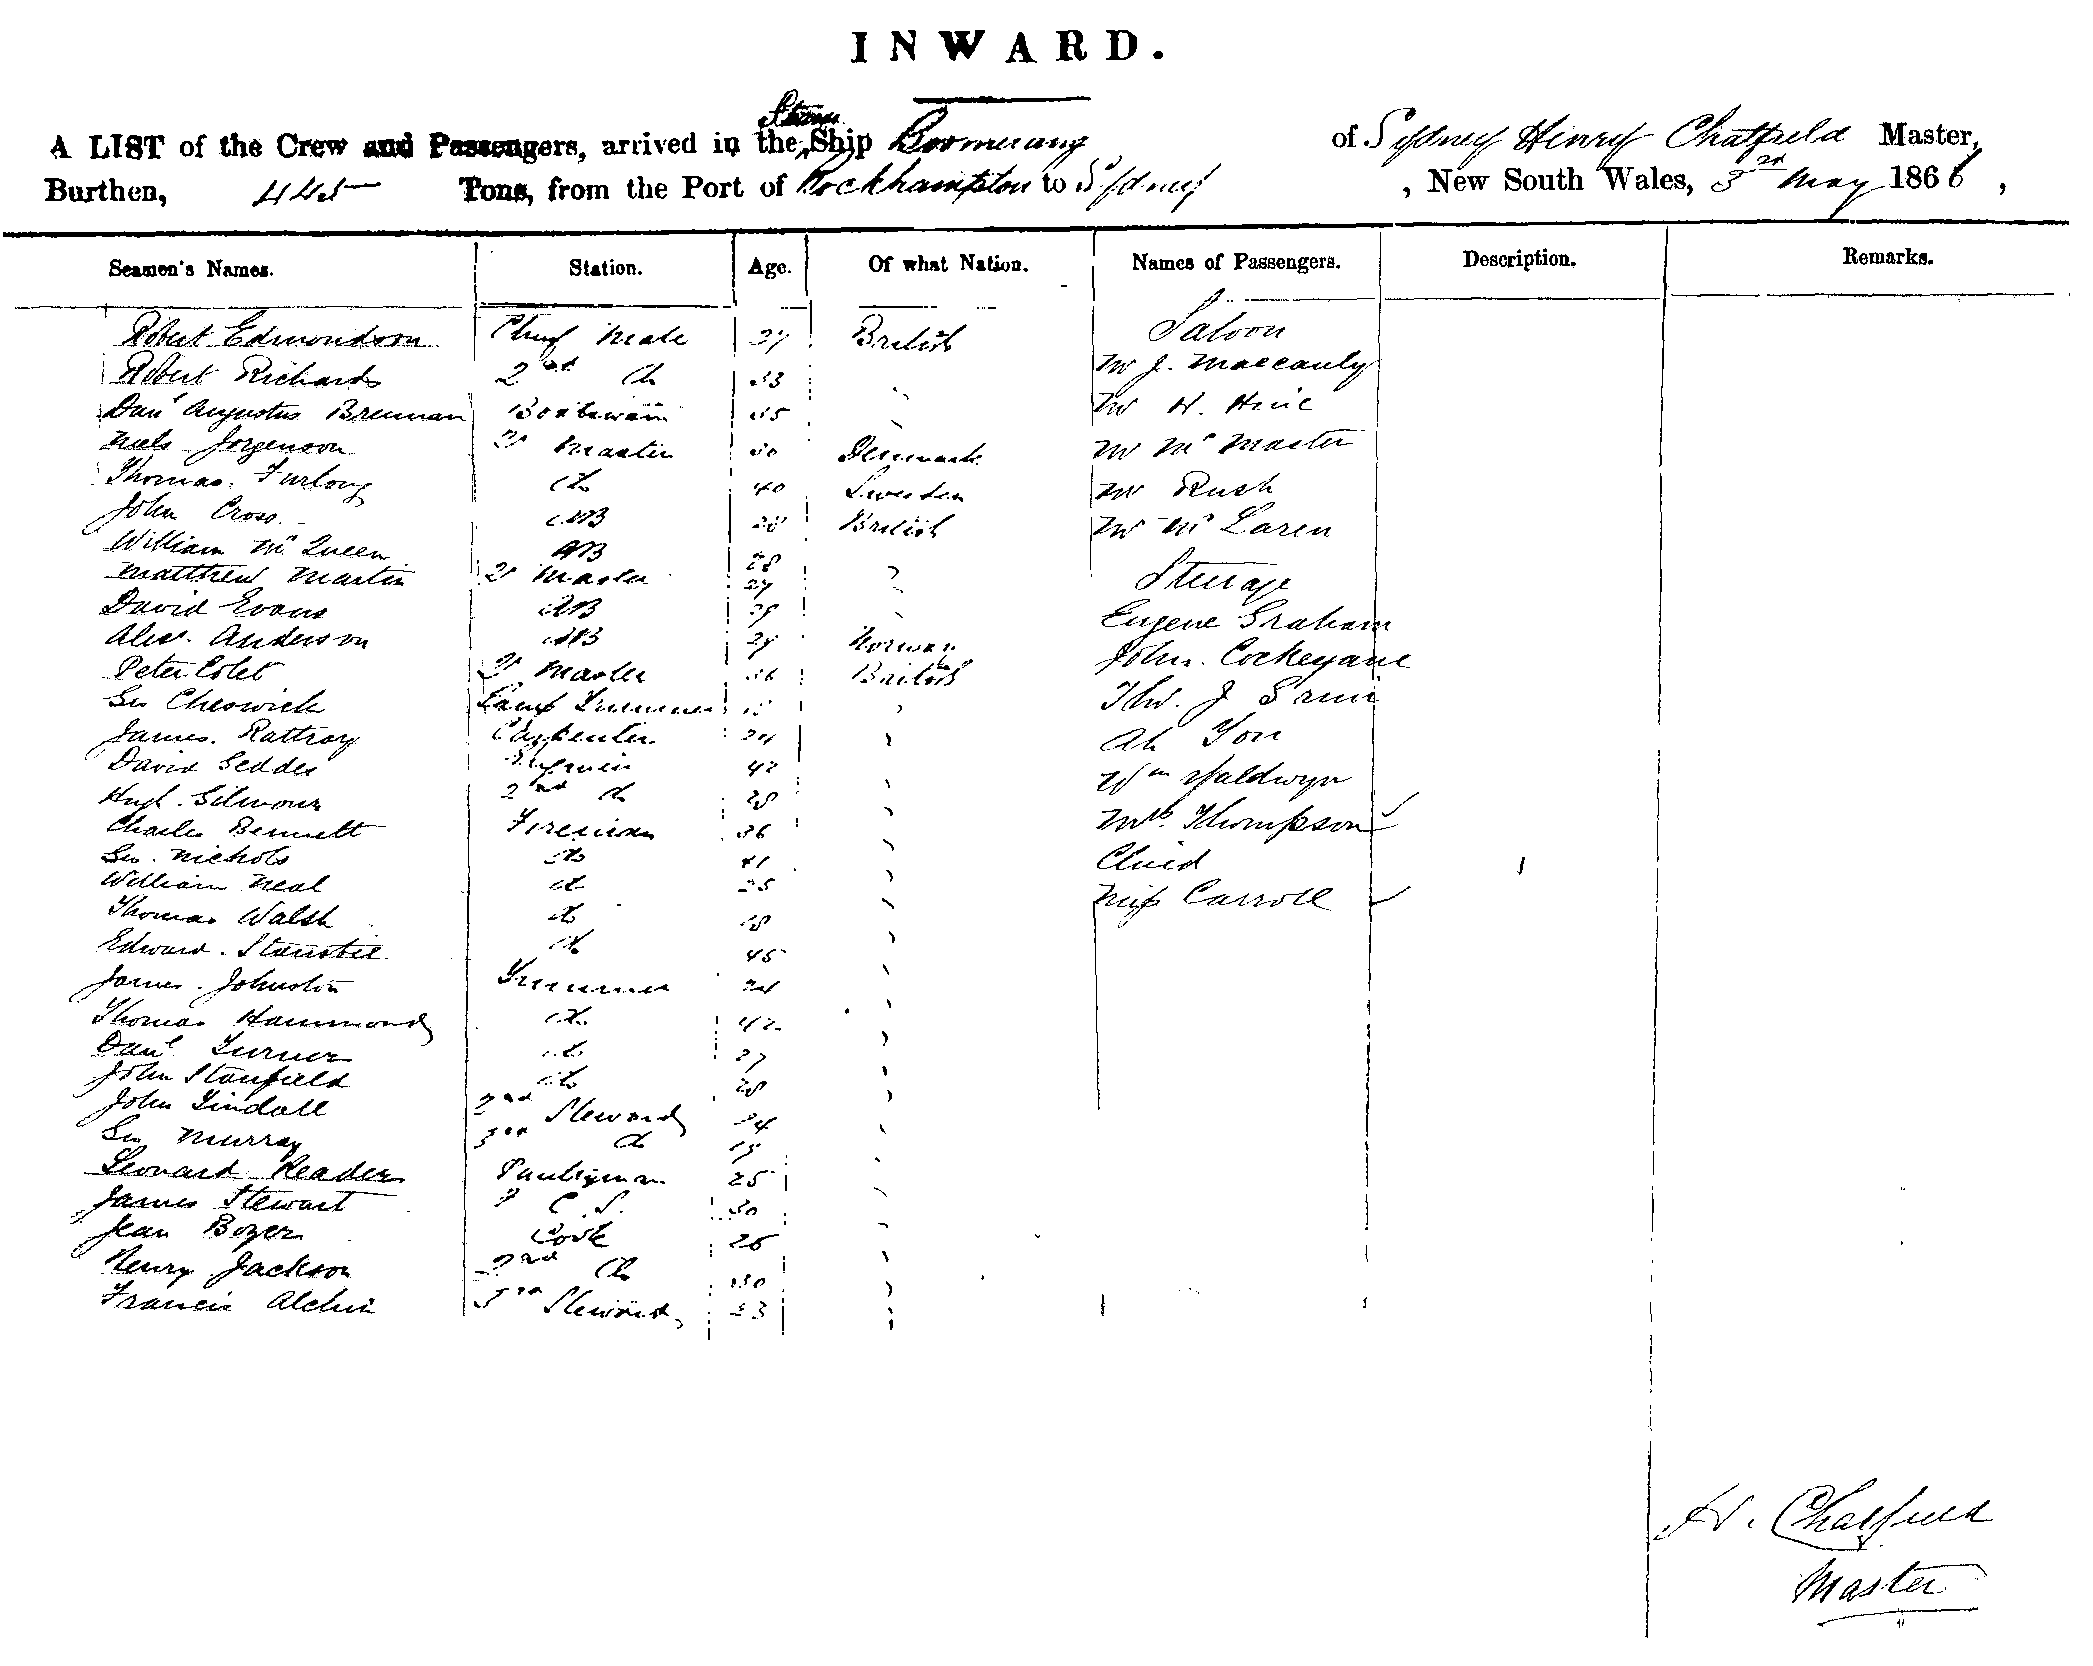 INWARD.
Steam
A LIST of the Crew and Passengers, arrived in the Ship Boomerang of Sydney Henry Chatfield Master,
Burthen, 445 Tons, from the Port of Rockhampton to Sydney, New South Wales, 3rd May 1866,
Seamen's Names. Station. Age. Of what Nation. Names of Passengers. Description. Remarks.
Robert Edmondson Chief Mate British Saloon
Robert Richards 2nd do 33 Mr J. Maccauly
Danl Augustus Brennan Boatswain 35 Mr H. Hine
Niels Jorgenson Qr Master 30 Denmark Mr McMaster
Thomas Furlong do 40 Sweden Mr Rush
John Cross AB 28 British Mr McLaren
William McQueen AB 28
Matthew Martin Qr Master 27 Steerage
David Evans AB 29 Eugene Graham
Alexr Anderson AB 29 Norway John Cockeyane
Peter Colet Qr Master 36 British
Geo Cheswick Lamp Trimmer Thos J
James Rattray Carpenter 24 Ah Yon
David Geddes 42
Hugh Gilmour 2nd do 28 Wm Maldwyn
Charles Bennett Fireman 36 Mrs Thompson
Geo Nichols do 41 Child 1
William Neal do 25
Thomas Walsh do 28 Miss Carroll
Edward do 45
James Johnston Trimmer 24
Thomas Hammond do 42
Danl Turner do 27
John Stanfield do 28
John Tindall 2nd Steward 24
Geo Murray 3rd do 19
Leonard Reader Pantryman 25
James Stewart F C S. 30
Jean Boyer Cook 26
Henry Jackson 2nd do 30
Francis Alchin 3rd Steward 23
H. Chatfield
Master